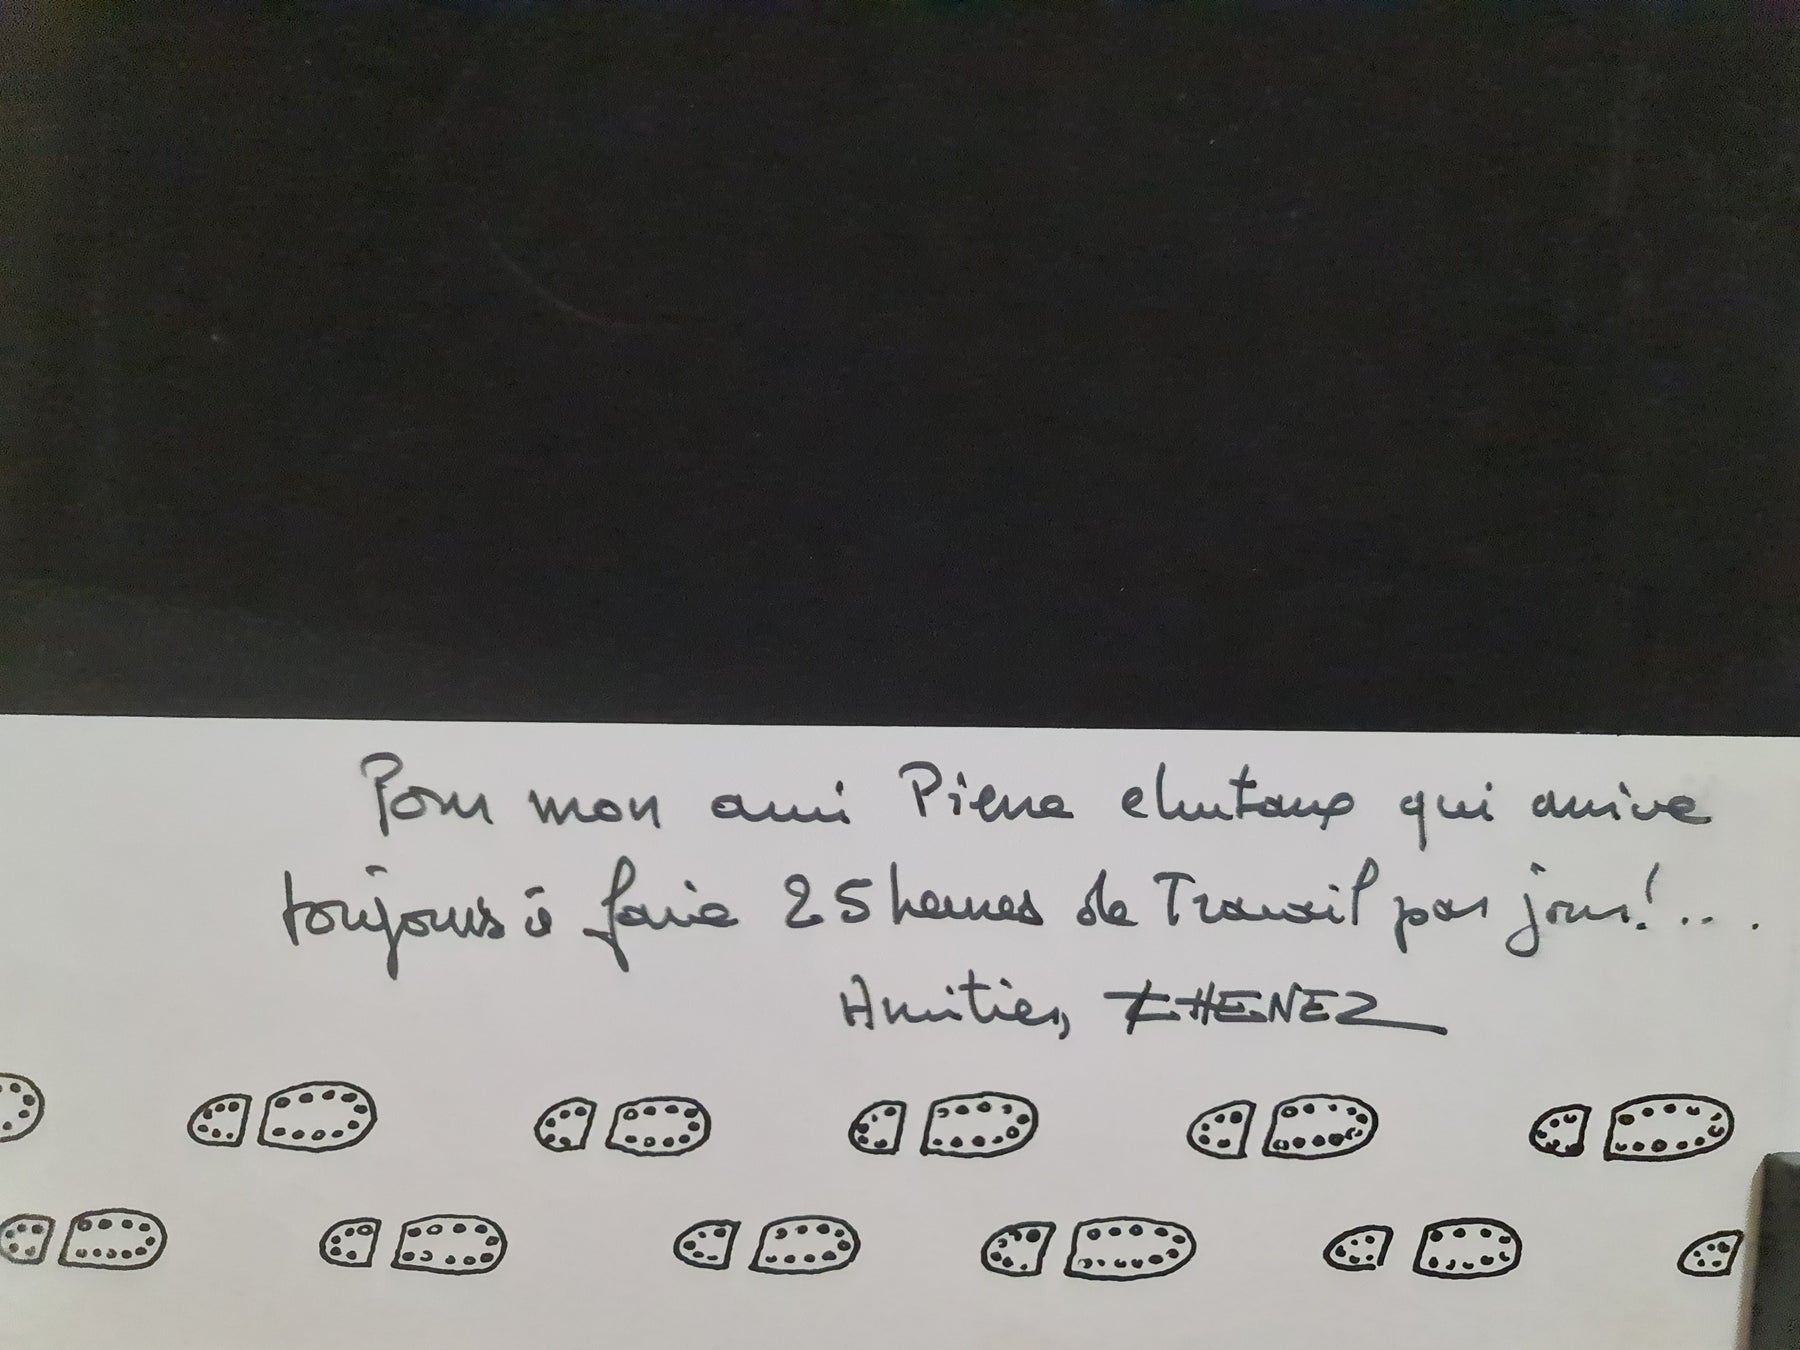 Pour mon ami Pierre qui arrive
toujours à faire 25 heures de Travail par jour!...
Amitiés, CHENEZ